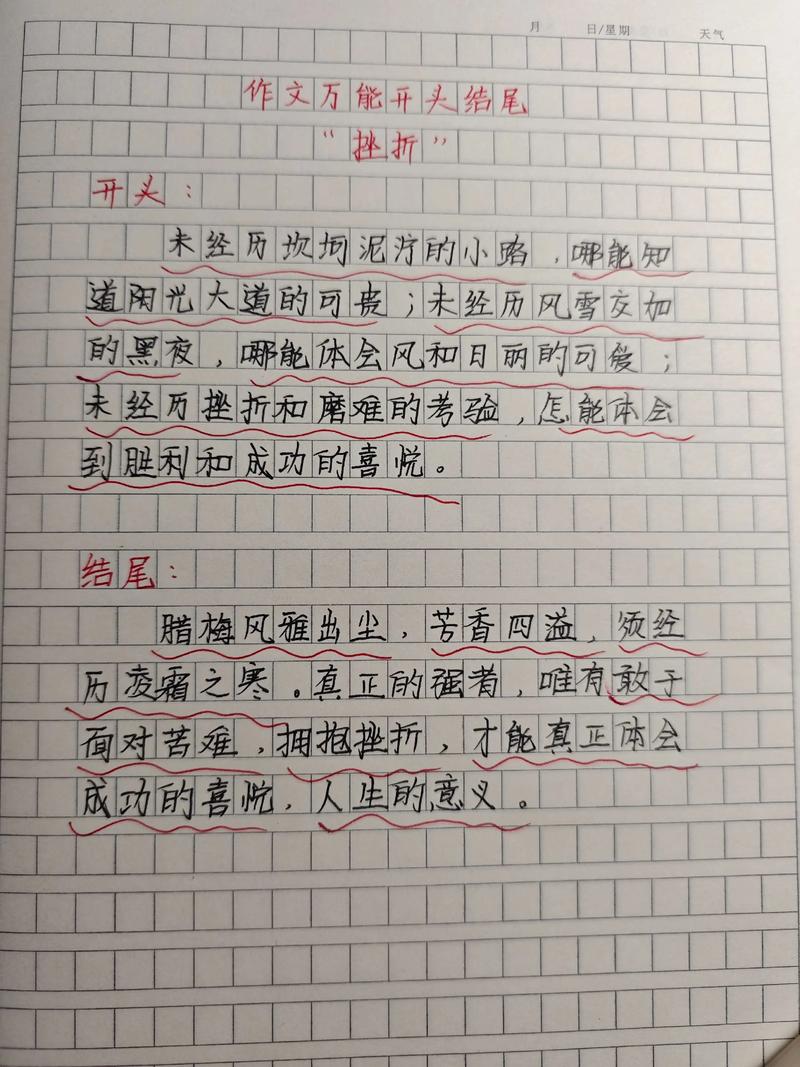 月 日/星期 天气
作文万能开头结尾
“挫折”
开头：
未经历坎坷泥泞的小路，哪能知
道阳光大道的可贵；未经历风雪交加
的黑夜，哪能体会风和日丽的可爱；
未经历挫折和磨难的考验，怎能体会
到胜利和成功的喜悦。
结尾：
腊梅风雅出尘，苦香四溢，须经
历凌霜之寒。真正的强者，唯有敢于
面对苦难，拥抱挫折，才能真正体会
成功的喜悦，人生的意义。